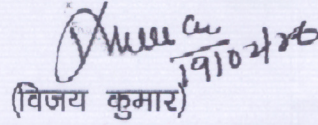 19/02/26
(विजय कुमार)